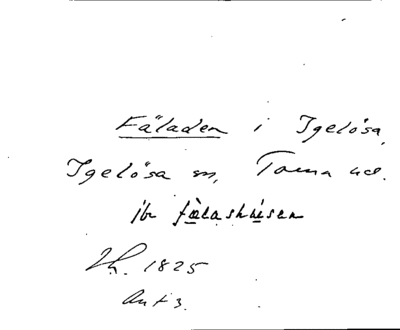 Fäladen i Igelösa,
Igelösa sn, Torna hd.
ib fälashusen
1825